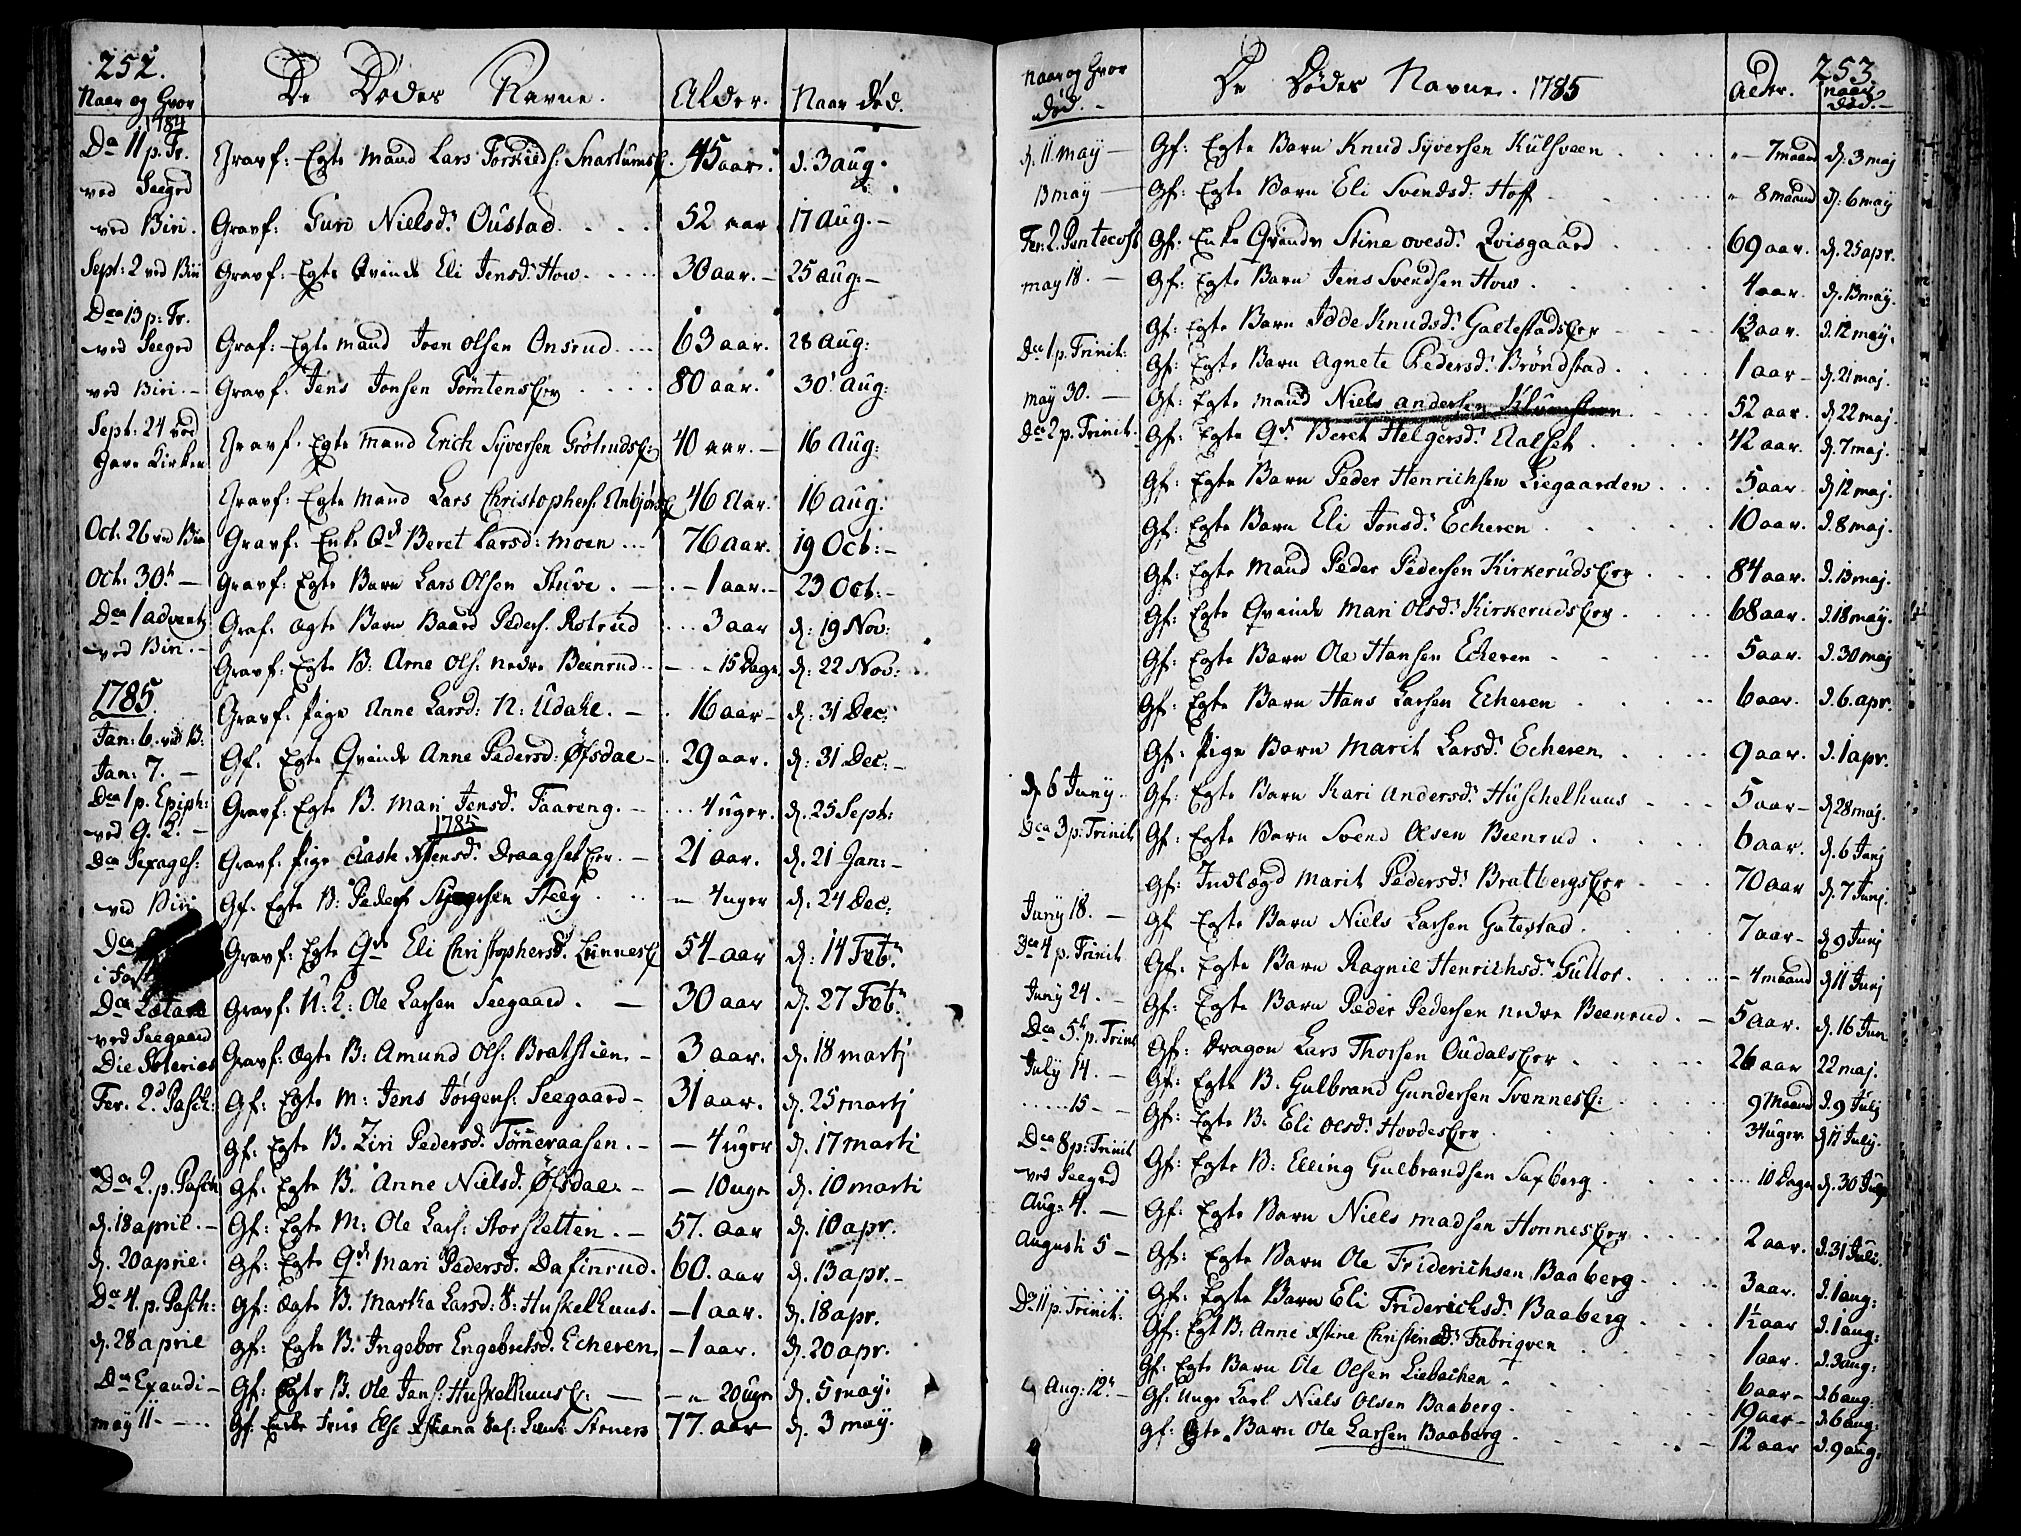 252.
Naar og Hvor
De Dødes Navne.
Alder.
Naar død.
1784
Dca 11 p. Tr.
ved Seegrd
Gravf: Egte Mand Lars Torkilds: Snartums 45 aar. d. 3 aug.
ved Biri. Gravf: Guri Nielsd. Oustad. 52 aar 17 aug.
Sept: 2 ved Biri Gravf. Egte Qvinde Eli Jensd. How 30 aar. 25 aug.
Dca 13 p. Tr.
ved Seegrd Graf: Egte Mand Iven Olsen Onsrud 63 aar. 28 aug:
ved Biri. Gravf. Jens Jonsen Tømtens 80 aar. 30 aug:
Sept: 24 ved
Gave Kirken Gravf. Egte Mand Erich Syversen Grøtruds 40 aar. 16 aug:
Gravf: Egte Mand Lars Christophers: 46 Aar. 16 aug:
Oct. 26 ved Biri Gravf: Enke Qd Beret Larsd: Moen 76 aar. 19 Oct:
Oct. 30 Gravf: Egte Barn Lars Olsen Stuve. 1 aar. 23 Oct:
Dca 1 advents Graf. ægte Barn Baard Peders. Rotrud 3 aar d: 19 Nov:
ved Biri. Gravf: Egte B: Arne Ols: nedre Beenrud 15 Dage d: 22 Nov:
1785.
Gravf. Pige Anne Larsd: N: Udahl. 16 aar d: 31 Dec:
Jan: 6. ved B:
Jan: 7. Gf. Egte Qvinde Anne Pedersd: Øfsdae 29 aar. d: 31 Dec:
Dca 1 p. Epiph:
ved G. K. Gravf: Egte B. Mari Jensd. Taareng. 4 uger. d. 25 Sept:
1785
Dca Sexages: Gravf. Pige Aaste Draagset 21 aar. d. 21 Jan:
ved Biri Gf. Egte B: Peder Steeg 4 uger d. 24 Dec:
Dca
i Fast Gravf: Egte Qde Eli Christophersd. Lunnes 54 aar d: 14 Feb:
Dca Lætare Gravf: N: L: Ole Larsen Seegaard. 30 aar d. 27 Feb:
ved Seegaard
Die Gravf: ægte B: Amund Ols: Brathien 3 aar. d. 18 martj
Fer. 2d Pasch: Gf: Egte M: Jens Jørgens: Seegaard 31 aar. d. 25 martj
Gf: Egte B. Ziri Pedersd. Tømmeraasen. 4 uger d. 17 marti
Dca 2. p. Pasch Gf: Egte B. Anne Nielsd. Øfsdae. 10 uger d. 10 marti
d. 18 april. Gf: Egte M: Ole Lars: Storsletten. 57. aar d. 10 apr.
d. 20 aprie: Gf: Egte Qd Mari Pedersd. Dafinrud. 60. aar d. 13 apr.
Dca 4. p. Pasch: Gf: ægte B. Martha Larsd: Huskelhuus. 1 aar. d. 18 apr.
d. 28 aprie Gf: Egte B. Ingebor Engebretsd. Echeren 1 aar. d. 20 apr.
Dca Exaudi Gf: Egte B. Ole Jans: Huskelhuus 20 uger d. 5 may.
may 11 Gf. Enke Frue Else 77. aar d. 3 may.
253.
Naar og Hvor
død.
De Dødes Navne. 1785
Alder.
naar
død.
d. 11 may Gf: Egte Barn Knud Syversen Kulsveen 7 maan d. 3 maj
13 may Gf: Egte Barn Eli Svendsd. Hoff 8 maan d. 6 may
Fer. 2. Pentecost Gf. Enke Qvinde Stine Ovesd. Qvisgaard 69 aar. d. 25 apr.
may 18. Gf: Egte Barn Jens Svendsen How 4 aar. d. 13 may.
Gf: Egte Barn Idde Knudsd. Gaelestads 13 aar. d. 12 may.
Dca 1 p. Trinit: Gf: Egte Barn Agnete Pedersd. Brøndstad 1 aar d. 21 maj.
may 30. Gf: Egte Mand Niels Andersen 52 aar. d. 22 maj.
Dca 2 p. Trinit. Gf: Egte Qd. Beret Helgersd. Aalset 42 aar. d. 7 maj.
Gf: Egte Barn Peder Henrichsen Liegaarden 5 aar. d. 12 maj.
Gf: Egte Barn Eli Jonsd. Echeren 10 aar. d. 8 maj.
Gf: Egte Mand Peder Pedersen Kirkeruds 84 aar. d. 13 maj.
Gf: Egte Qvinde Mari Olsd. Kirkeruds 68 aar. d. 18 may.
Gf: Egte Barn Ole Hansen Echeren 5 aar. d. 30 maj
Gf: Egte Barn Hans Larsen Echeren 6 aar. d. 6. apr.
Gf: Pige Barn Marit Larsd. Echeren 9 aar. d. 1 apr.
d. 6 Juny Gf: Egte Barn Kari Andersd. Huschelhuus 5 aar d. 28 maj.
Dca 3 p: Trinit Gf: Egte Barn Svend Olsen Beenrud 6 aar. d. 6 Junj
Gf: Indlægd Marit Pedersd. Bratbergs 70 aar d. 7 Junj.
Juny 18. Gf Egte Barn Niels Larsen Galestad 7 aar d. 9 Junj
Dca 4 p. Trinit Gf: Egte Barn Ragnil Henrichsd. Gullor 4 maand d. 11 Junj
Juny 24. Gf: Egte Barn Peder Pedersen nedre Beenrud 5 Aar. d. 16 Jun
Dca 5t p. Trinit Gf: Dragon Lars Thorsen Oudals 26 aar 22 maj.
July 14. Gf: Egte B. Gulbrand Gundersen Svennes 9 Maand d. 9 July
15 Gf: Egte B. Eli Olsd. Hovdes 34 uger d. 11 July.
Dca 8 p: Trinit
ved Seegrd Gf: Egte B: Elling Gulbrandsen Saxberg 10 Dage d. 30 July
Aug: 4. Gf: Egte Barn Niels Madsen Honnes 2 aar. d. 31 Juli.
Augusti 5 Gf: Egte Barn Ole Friderichsen Baaberg 3 aar. d. 1 aug:
Dca 11 p. Trinit: Gf: Egte Barn Eli Friderichsd. Baaberg 1½ aar d. 1 aug:
Gf: Egt B: Anne Stine Fabriqven 1 aar. d. 3 aug:
Gf: Egte Barn Ole Olsen Liebachen 6 aar d. 6 aug:
Aug: 12. Gf. Unge Karl Niels Olsen Baaberg. 19 aar d. 6 aug:
Gf: Egte Barn Ole Larsen Baaberg 12 aar d. 9 aug: